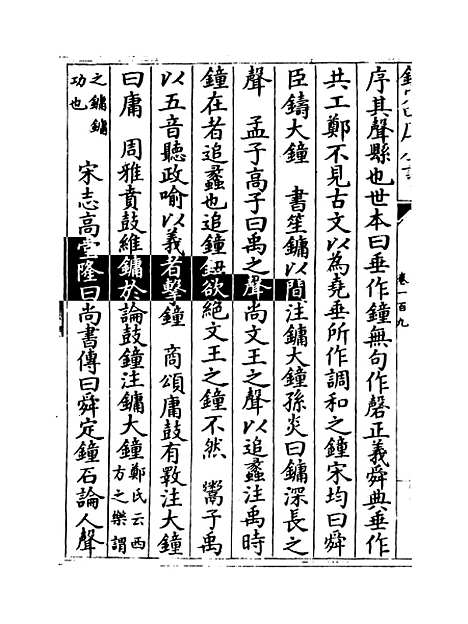 序其聲縣也世本曰垂作鐘無句作磬正義舜典垂作
共工鄭不見古文以為堯垂所作調和之鐘宋均曰舜
臣鑄大鐘　書笙鏞以間注鏞大鐘孫炎曰鏞深長之
聲　孟子高子曰禹之聲尚文王之聲以追蠡注禹時
鐘在者追蠡也追鐘鈕欲絕文王之鐘不然　鬻子禹
以五音聽政喻以義者擊鐘　商頌庸鼓有斁注大鐘
曰庸　周雅賁鼓維鏞於論鼓鐘注鏞大鐘鄭氏云西方之樂謂
之鏞鏞功也　宋志高堂隆曰尚書傳曰舜定鐘石論人聲
卷一百九